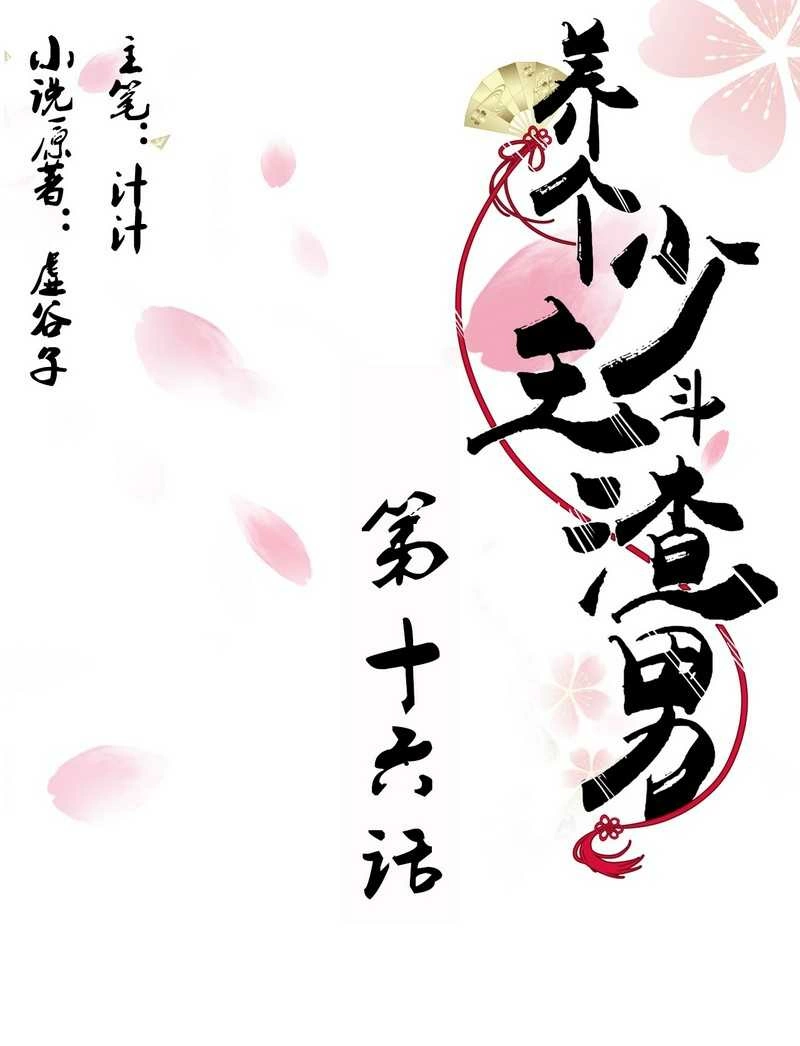 养个少主斗渣男
第十六话
主笔：汁汁
小说原著：虚谷子